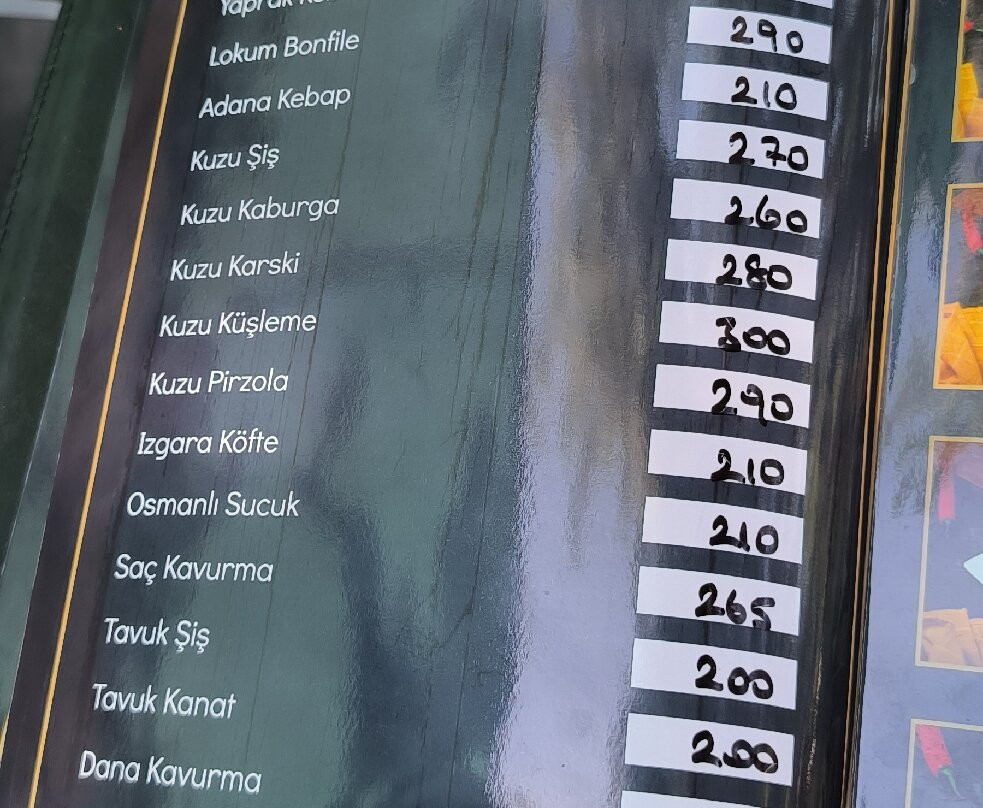 Yaprak
Lokum Bonfile 290
Adana Kebap 210
Kuzu Şiş 270
Kuzu Kaburga 260
Kuzu Karski 280
Kuzu Küşleme 300
Kuzu Pirzola 290
Izgara Köfte 210
Osmanlı Sucuk 210
Saç Kavurma 265
Tavuk Şiş 200
Tavuk Kanat 200
Dana Kavurma